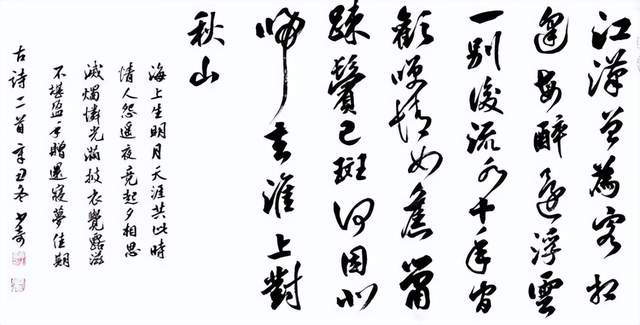 江漢曾為客相
逢每醉還浮雲
一別後流水十年間
歡咲情如舊蕭
疎鬢已斑何因北
歸去淮上對
秋山
海上生明月天涯共此時
情人怨遥夜竟起夕相思
滅燭憐光滿披衣覺露滋
不堪盈手贈還寢夢佳期
古詩二首辛丑冬